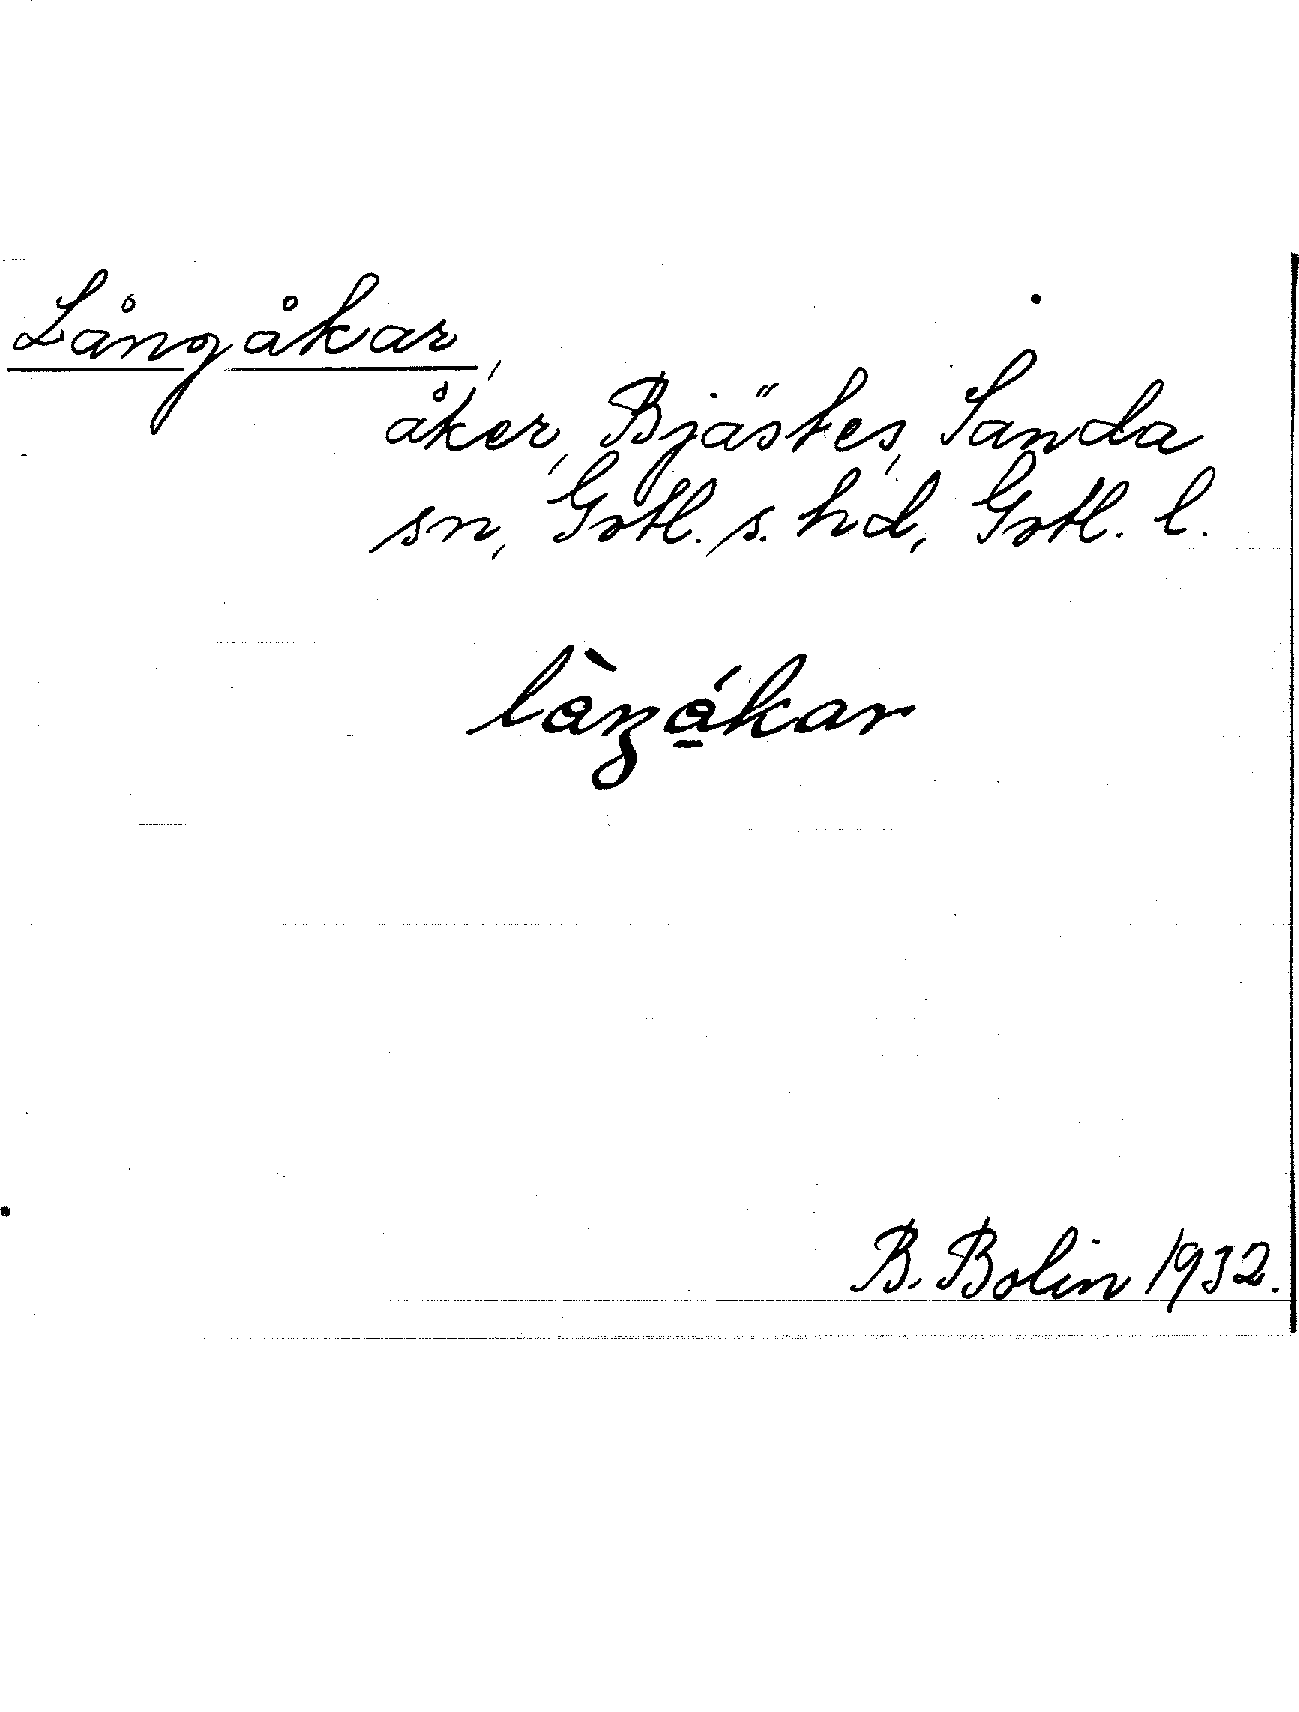 Långåkar,
åker, Bjästes, Sanda
sn, Gotl. s. hd, Gotl. l.
làŋákar
B. Bolin 1932.